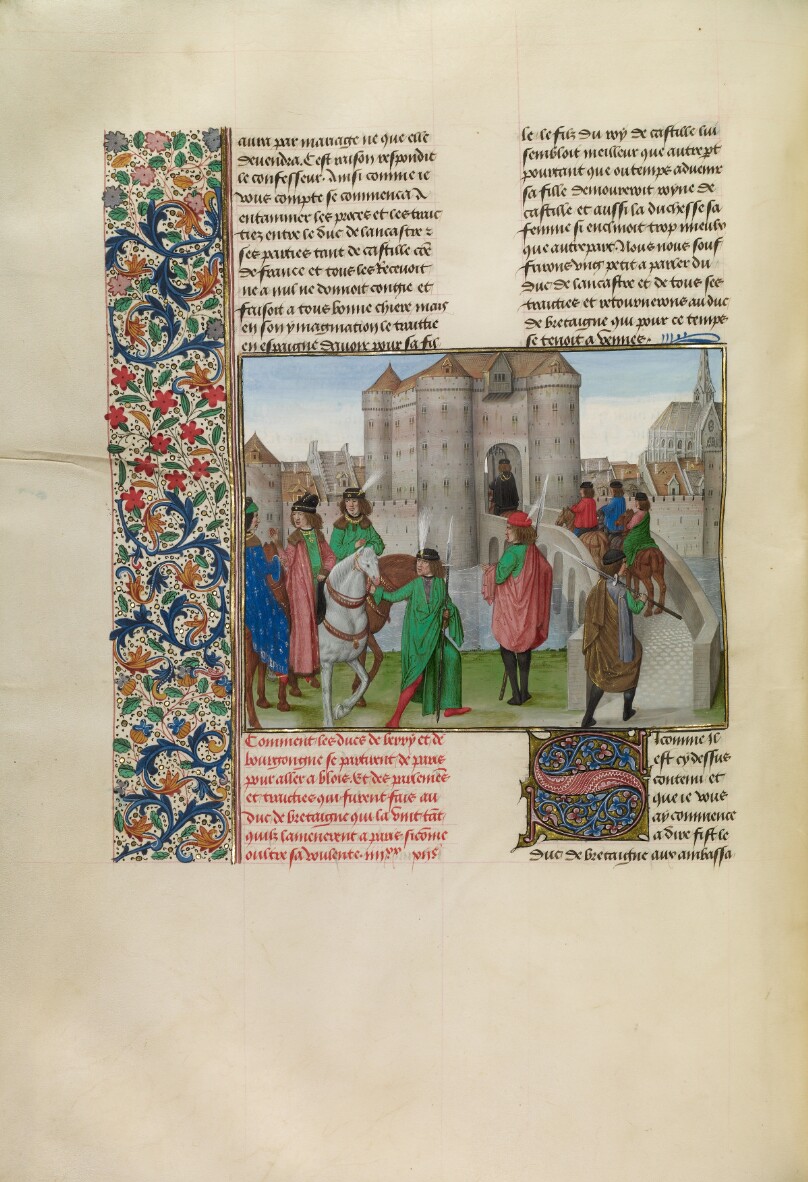 aura par mariage ne que elle
devendra. C'est raison respondit
le confesseur. Ainsi comme ie
vous compte se commenca a
entammer les proces et les traic
tiez entre le duc de lancastre &
ses parties tant de castille cõe
de france et tous les recevoit
ne a nul ne donnoit congie et
faisoit a tous bonne chiere mais
en son ymagination le traittie
en espaigne davoir pour sa fil
le le filz du roy de castille lui
sembloit meilleur que autre pt
pourtant que ou temps advenir
sa fille demourroit royne de
castille et aussi la duchesse sa
femme si enclinoit trop mieulx
que autrepart. Nous nous souf
frirons ung petit a parler du
duc de lancastre et de tous ses
traities et retournerons au duc
de bretaigne qui pour ce temps
se tenoit a vennes.
Comment les ducs de berry et de
bourgongne se partirent de paris
pour aller a blois. Et des parlemẽs
et traities qui furent fais au
duc de bretaigne qui la vint tãt
quilz lamenerent a paris sicõme
oultre sa voulente.
Si comme il
est cy dessus
contenu et
que ie vous
ay commence
a dire fist le
duc de bretaigne aux ambassa